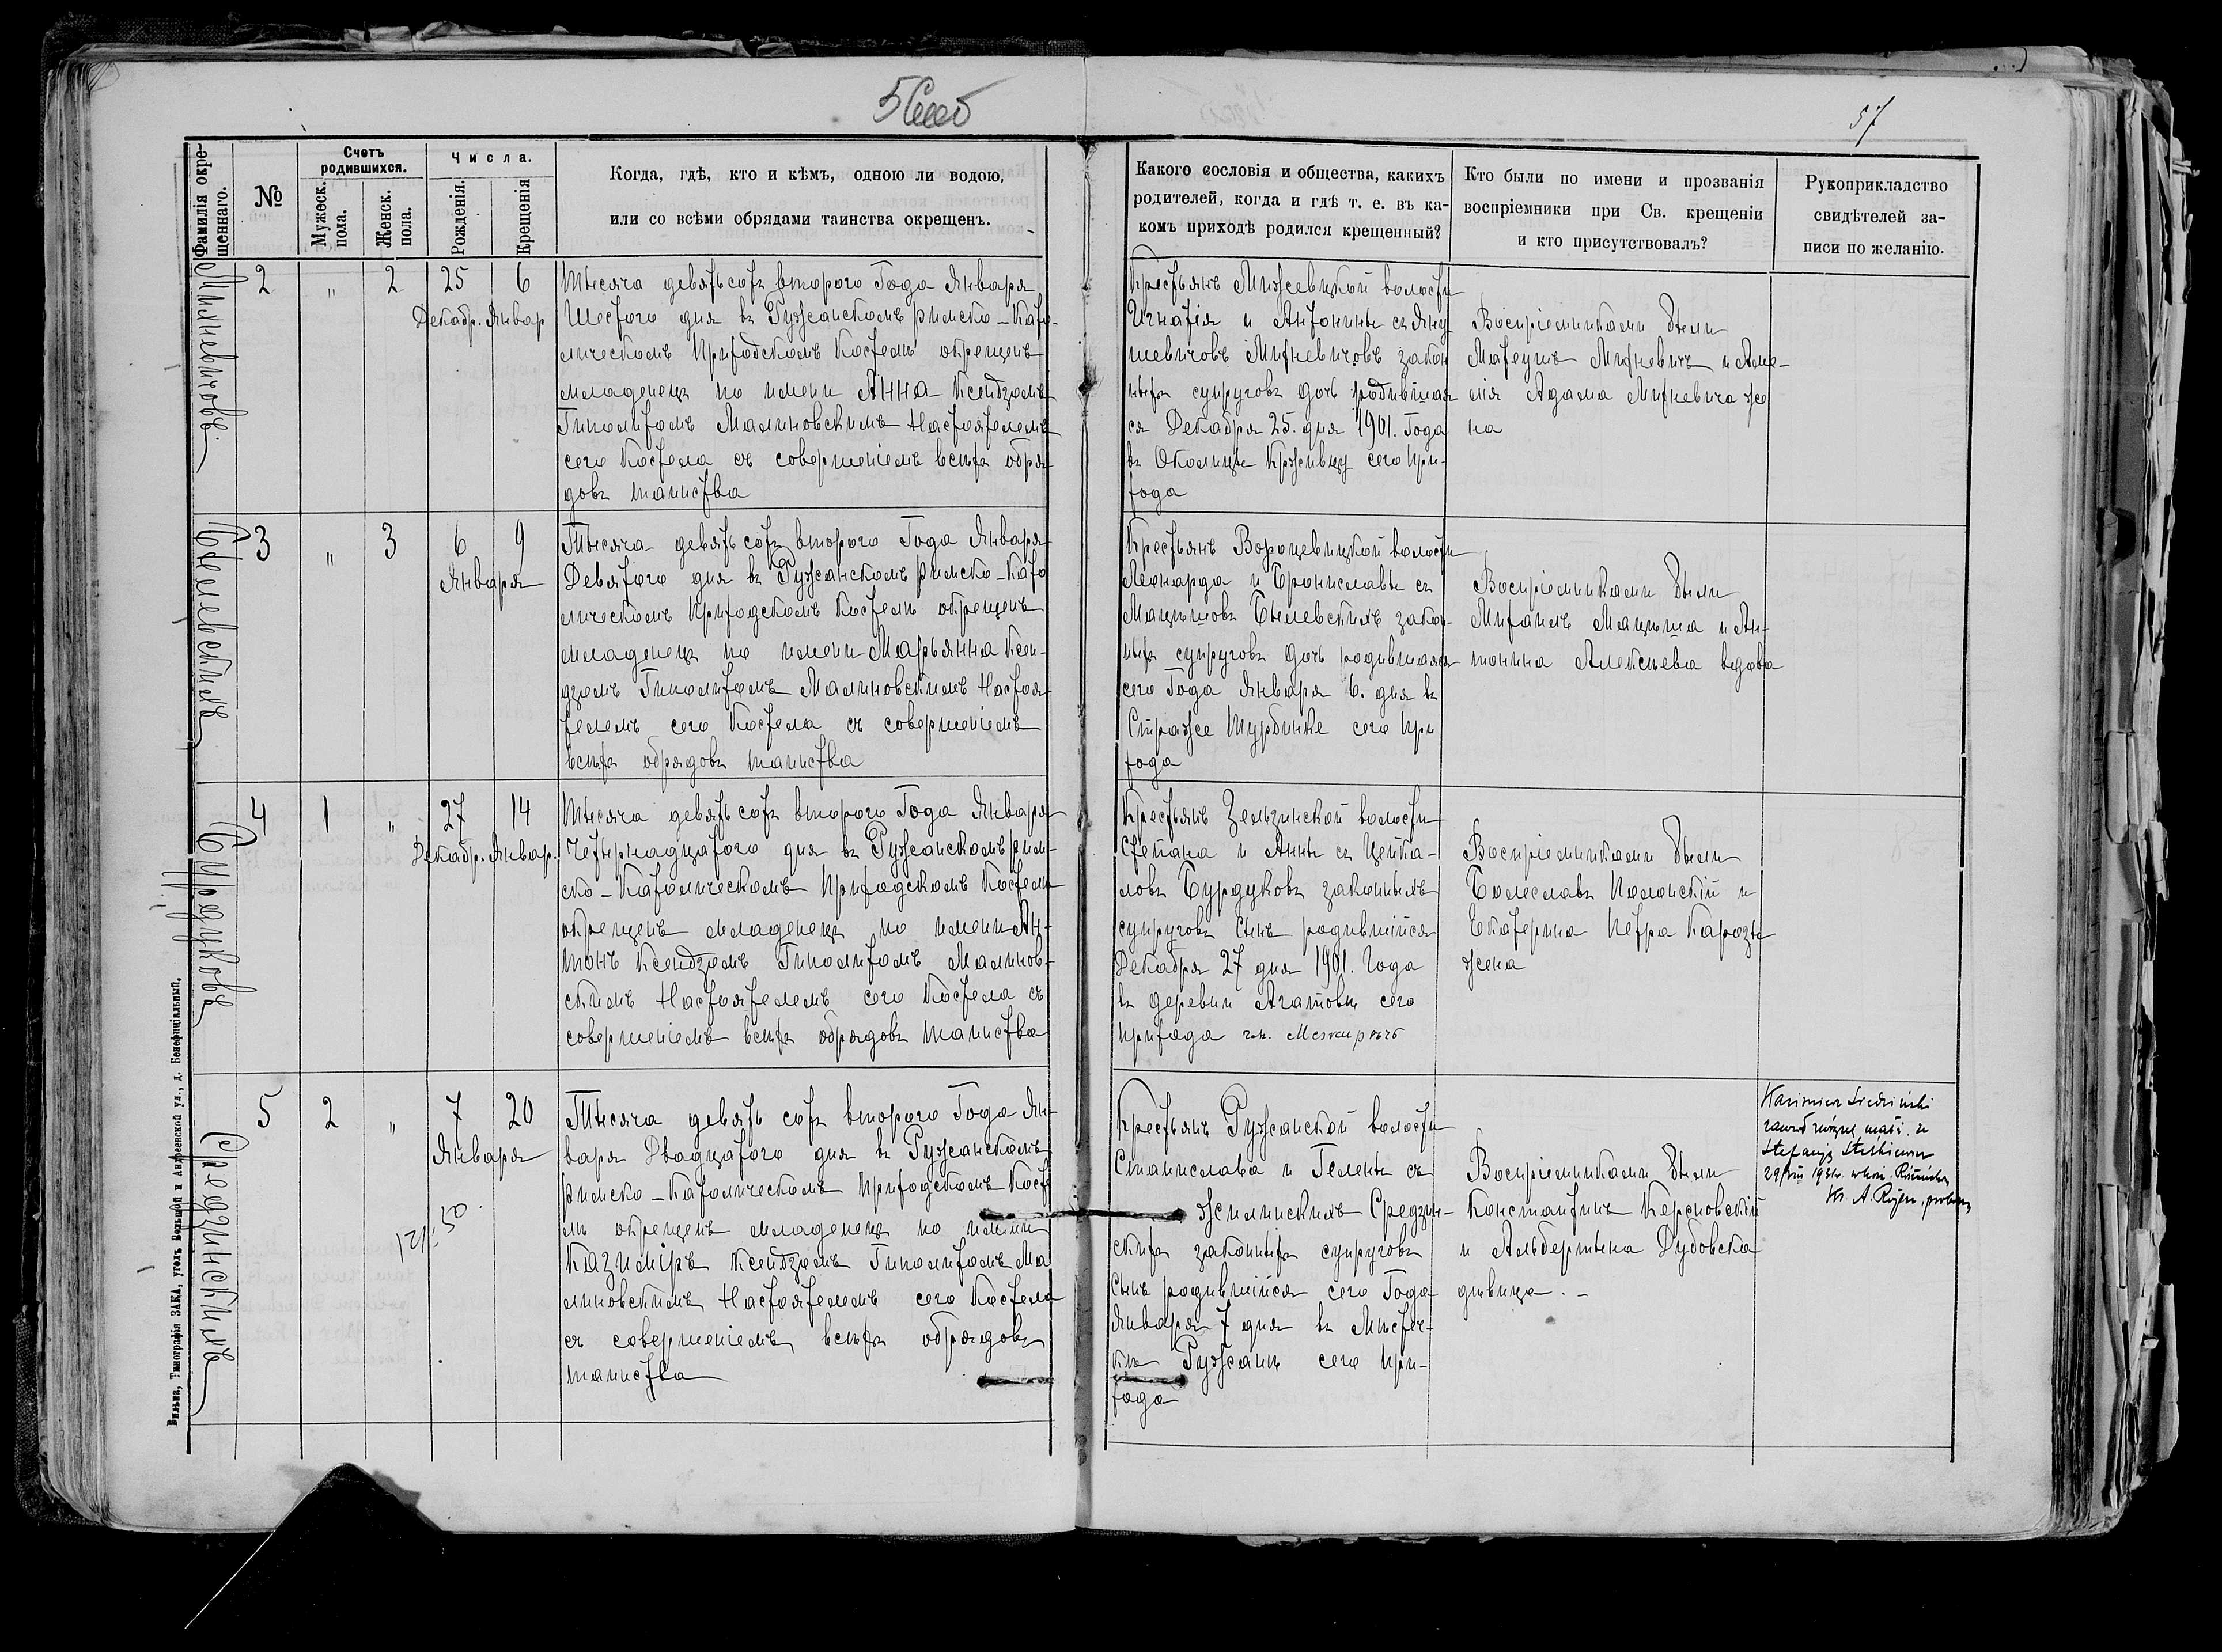 57
Фамилія окре-
щеннаго.
№
Счетъ
родившихся.
Мужеск.
пола.
Женск.
пола.
Числа.
Рожденія.
Крещенія
Когда, гдѣ, кто и кѣмъ, одною ли водою,
или со всѣми обрядами таинства окрещенъ.
Какого сословія и общества, какихъ
родителей, когда и гдѣ т. е. въ ка-
комъ приходѣ родился крещенный?
Кто были по имени и прозванія
воспріемники при Св. крещеніи
и кто присутствовалъ?
Рукоприкладство
свидѣтелей за-
писи по желанію.
2 " 2 25 6
Декабр. Январ
Тысяча девятьсотъ второго Года Января
Шестого дня въ Ружанскомъ римско-като-
лическомъ Приходскомъ Костелѣ окрещенъ
младенецъ по имени Анна Ксендзомъ
Гиполитомъ Малиновскимъ Настоятелемъ
сего Костела съ совершеніемъ всѣхъ обря-
довъ таинства
Крестьянъ Мижевицкой волости
Игнатія и Антонины съ Яну-
шевичовъ Михневичовъ закон
ныхъ супруговъ дочь родившая
ся Декабря 25. дня 1901. Года
въ Околицѣ сего При-
хода
Воспріемниками были
Матеушъ Михневичъ и Аме-
лія Адама Михневича же
на
Былевскимъ
3 " 3 6 9
Января
Тысяча девятьсотъ второго Года Января
Девятого дня въ Ружанскомъ римско-като
лическомъ Приходскомъ Костелѣ окрещенъ
младенецъ по имени Марьянна Ксен-
дзомъ Гиполитомъ Малиновскимъ Настоя-
телемъ сего Костела съ совершеніемъ
всѣхъ обрядовъ таинства
Крестьянъ Вороцевицкой волости
Леонарда и Брониславы съ
Мацышовъ Былевскихъ закон-
ныхъ супруговъ дочь родившаяся
сего Года Января 6. дня въ
Страже сего При
хода
Воспріемниками были
Михаилъ Мацыша и Ан-
тонина Алексѣева вдова
Бурдуковъ
4 1 " 27 14
Декабр. Январ.
Тысяча девятьсотъ второго Года Января
Четырнадцатого дня въ Ружанскомъ рим-
ско-католическомъ Приходскомъ Костелѣ
окрещенъ младенецъ по имени Ан-
тонъ Ксендзомъ Гиполитомъ Малинов-
скимъ Настоятелемъ сего Костела съ
совершеніемъ всѣхъ обрядовъ таинства
Крестьянъ Зельзинской волости
Степана и Анны съ Цейка-
ловъ Бурдуковъ законныхъ
супруговъ сынъ родившійся
Декабря 27 дня 1901. Года
въ деревни Агатовѣ сего
Прихода
Воспріемниками были
Болеславъ Полонскій и
Екатерина Петра Карозы
жена
Средзинскимъ
5 2 " 7 20
Января
Тысяча девятьсотъ второго Года Ян-
варя Двадцатого дня въ Ружанскомъ
римско-католическомъ Приходскомъ Косте
лѣ окрещенъ младенецъ по имени
Казиміръ Ксендзомъ Гиполитомъ Ма
линовскимъ Настоятелемъ сего Костела
съ совершеніемъ всѣхъ обрядовъ
таинства
Крестьянъ Ружанской волости
Станислава и Гелены съ
Жилинскихъ Средзин-
скихъ законныхъ супруговъ
сынъ родившійся сего Года
Января 7 дня въ Мѣстеч-
кѣ Ружанѣ сего При-
хода
Воспріемниками были
Константинъ Керсновскій
и Альбертына Дубовска
дѣвица. –
Kazimierz Średziński
zawarł związek małż. z
Stefanią
Вильна, Типографія ЗАКА, уголъ Большой и Андреевской ул., д. Бенефиціальный.